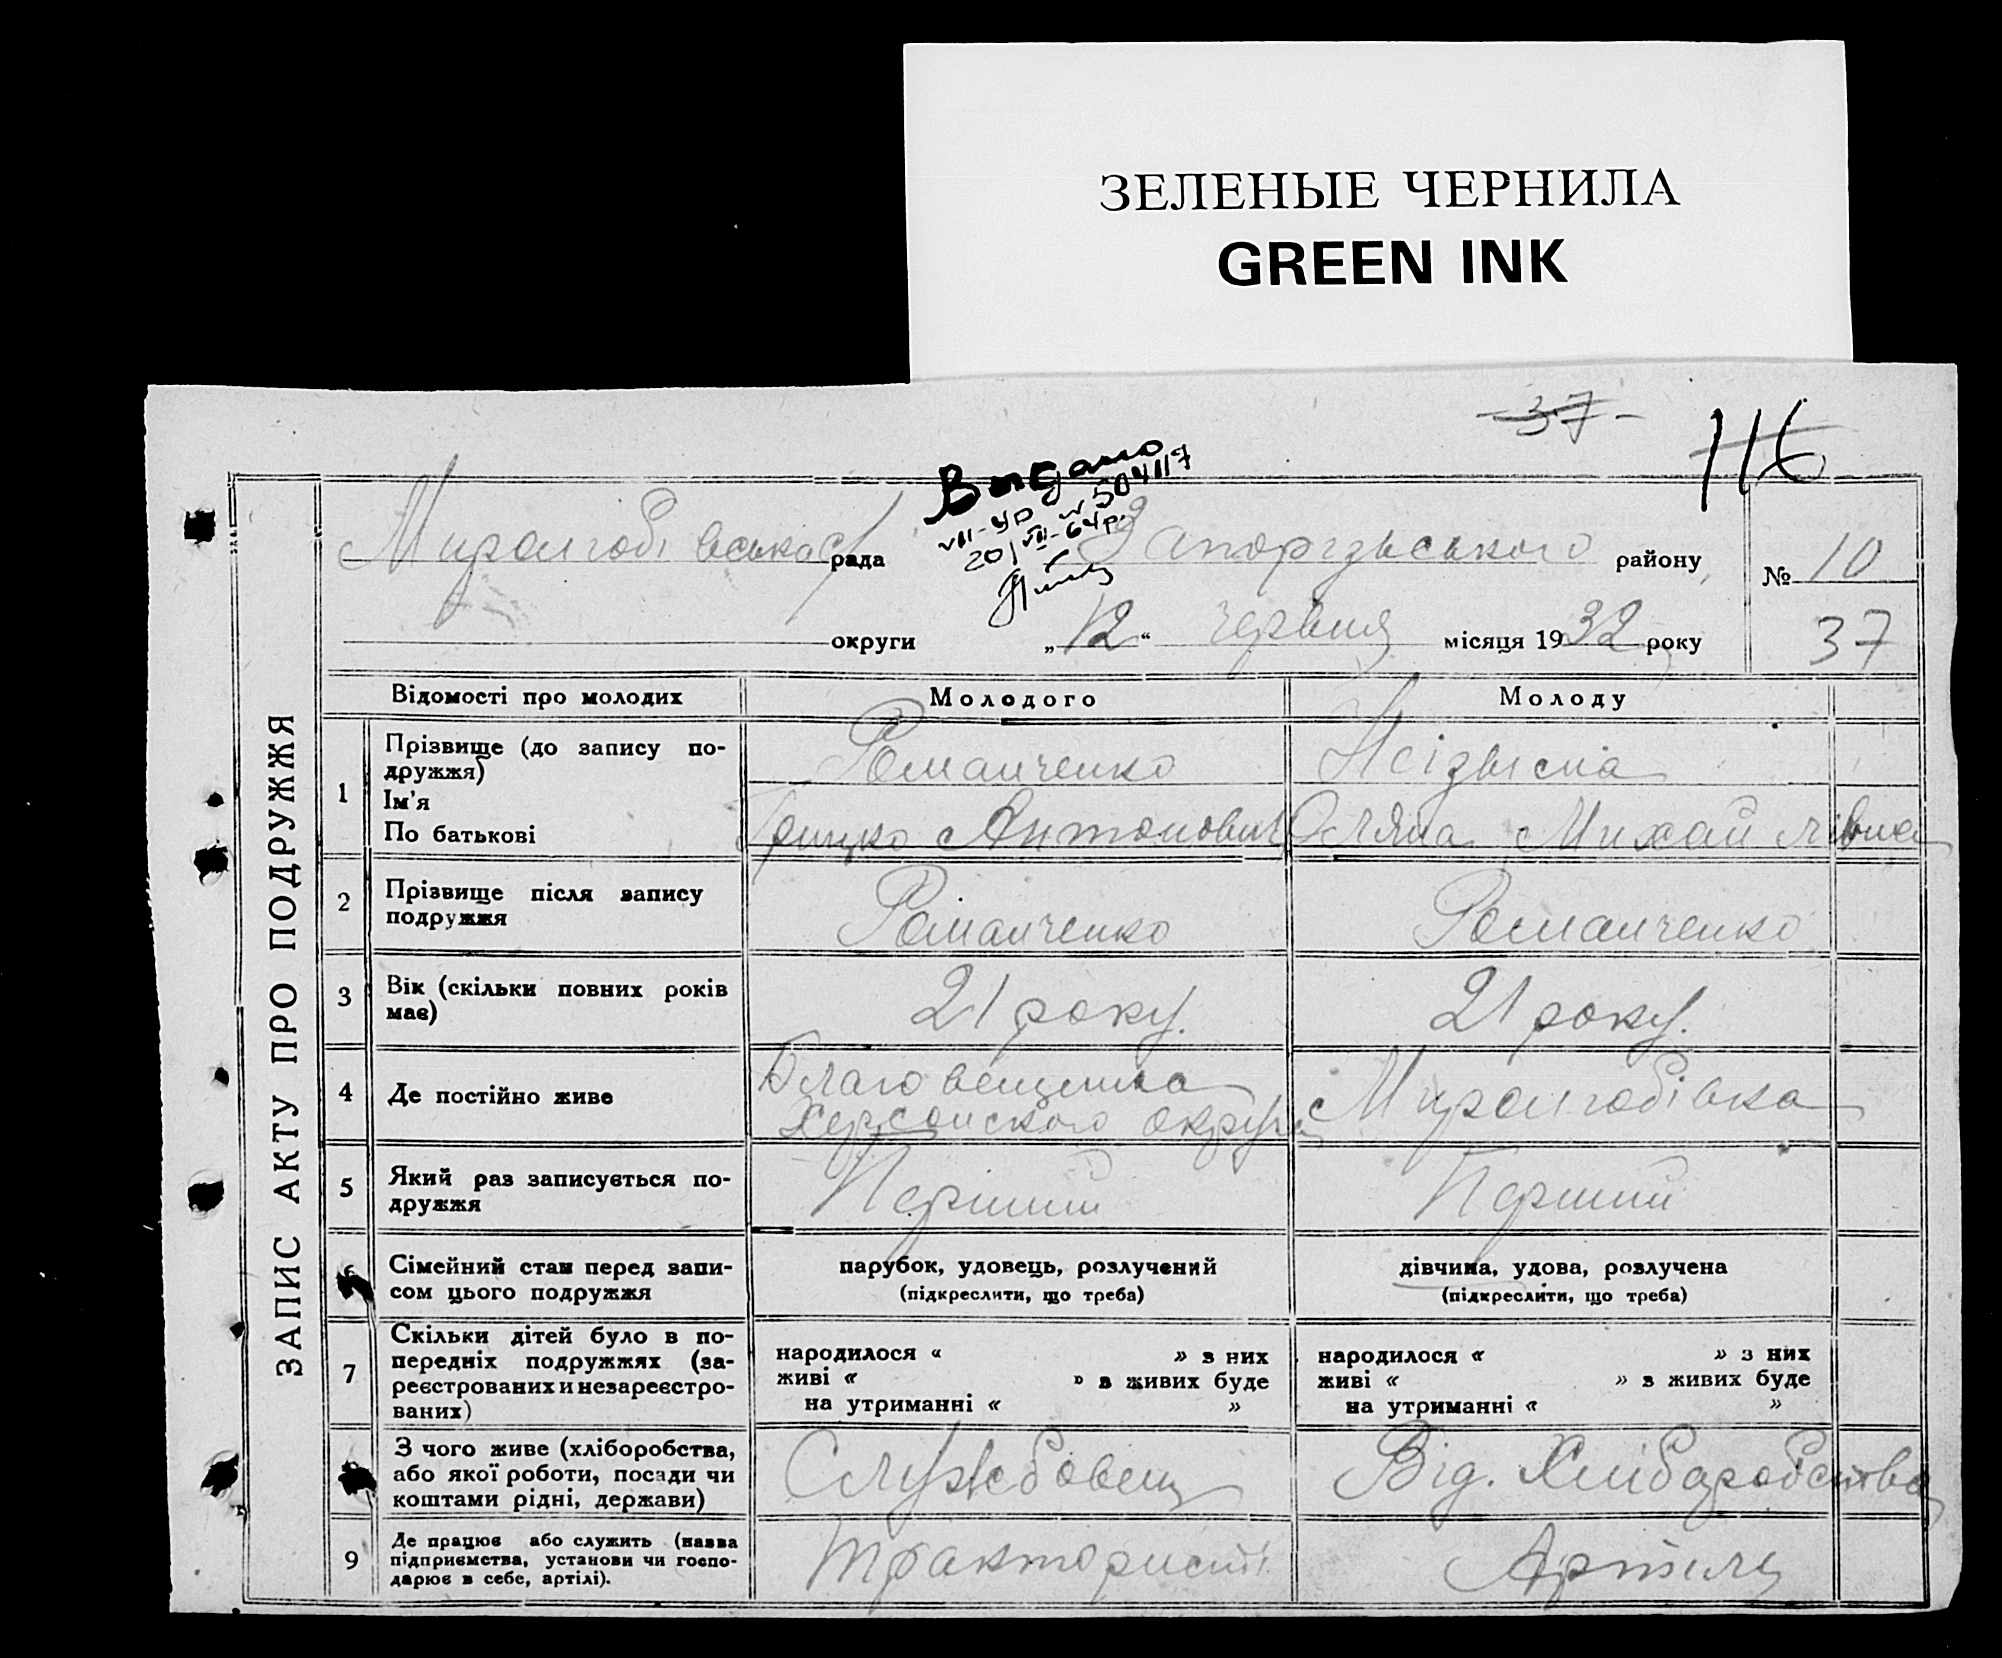 ЗЕЛЕНЫЕ ЧЕРНИЛА
GREEN INK
37 -
116
Выдано
VII-ЯР № 504117
20/VII-64р.
рада Запорізьського району № 10
округи „12“ червня місяця 1932 року 37
ЗАПИС АКТУ ПРО ПОДРУЖЖЯ
Відомості про молодих Молодого Молоду
1 Прізвище (до запису по-
дружжя)
Ім’я
По батькові
Романченко
Грицько Антонович Оляна Михайлівна
2 Прізвище після запису
подружжя
Романченко Романченко
3 Вік (скільки повних років
має)
21 року. 21 року.
4 Де постійно живе
Благовещенка
Херсонского округа
5 Який раз записується по-
дружжя
Перший Перший
6 Сімейний стан перед запи-
сом цього подружжя
парубок, удовець, розлучений
(підкреслити, що треба)
дівчина, удова, розлучена
(підкреслити, що треба)
7 Скільки дітей було в по-
передніх подружжях (за-
реєстрованих и незареєстро-
ваних)
народилося « » з них
живі « » з живих буде
на утриманні « »
народилося « » з них
живі « » з живих буде
на утриманні « »
З чого живе (хліборобства,
або якої роботи, посади чи
коштами рідні, держави)
Службовец Від. Хліборобства
9 Де працює або служить (назва
підприємства, установи чи госпо-
дарює в себе, артілі).
Трактористі Артили